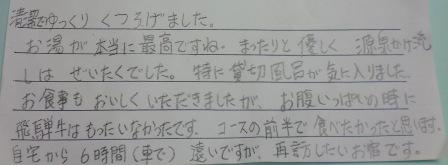 清潔でゆっくり くつろげました。
お湯が本当に最高ですね。まったりと優しく 源泉かけ流
しは ぜいたくでした。特に貸切風呂が気に入りました。
お食事も おいしくいただきましたが、お腹いっぱいの時に
飛騨牛はもったいなかったです。コースの前半で食べたかったと思います。
自宅から6時間(車で)遠いですが、再訪したいお宿です。